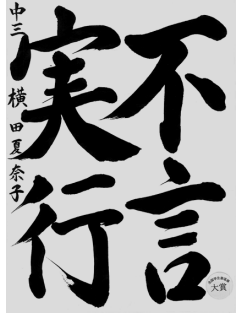 不言
実行
中三 横田夏奈子
大賞